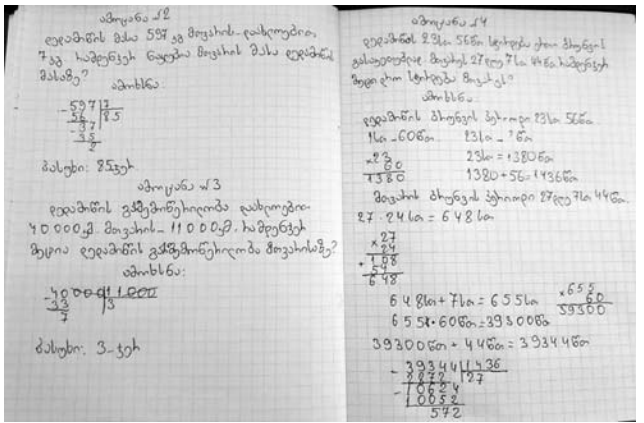 ამოცანა №2
დედამიწის მასა 597 კგ მთვარის - დაახლოებით
7 კგ. რამდენჯერ ნაკლებია მთვარის მასა დედამიწის
მასაზე?
ამოხსნა:
- 597 | 7
56 | 85
- 37
35
2
პასუხი: 85ჯერ
ამოცანა №3
დედამიწის გარშემოწერილობა დაახლოებით
40000კმ. მთვარის - 11000კმ. რამდენჯერ
მეტია დედამიწის გარშემოწერილობა მთვარისაზე?
ამოხსნა:
- 40000 | 11000
33 | 3
7
პასუხი: 3-ჯერ
ამოცანა №4
დედამიწას 23სთ 56წთ სჭირდება ერთი ბრუნვის
მთვარეს 27დღე 7სთ 44წთ რამდენჯერ
მეტი დრო სჭირდება მთვარეს?
ამოხსნა:
დედამიწის ბრუნვის პერიოდი 23სთ 56წთ
1სთ - 60წთ 23სთ - ?წთ
×23
60
1380
23სთ = 1380წთ
1380+56=1436წთ
მთვარის ბრუნვის პერიოდი 27დღე 7სთ 44წთ.
27·24სთ = 648სთ
×27
24
+108
54
648
648სთ + 7სთ = 655სთ
×655
60
39300
655·60წთ=39300წთ
39300წთ + 44წთ = 39344წთ
- 39344 | 1436
2872 | 27
- 10624
10052
572